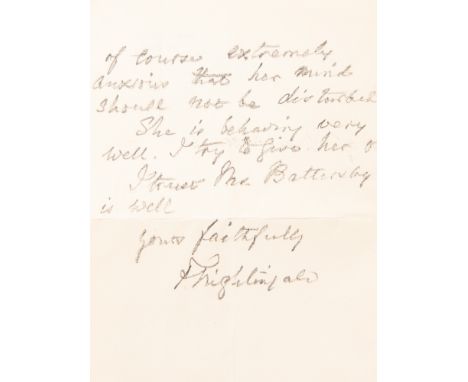 of course extremely
anxious that her mind
should not be disturbed
She is behaving very
well. I try to give her
I trust Mrs. Battersby
is well
yours faithfully
F Nightingale